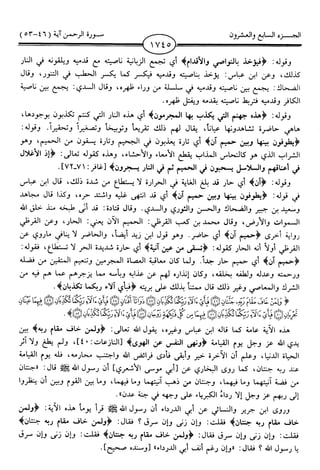 الجـــزء السابع والعشرون
سـورة الرحمن آية (٤٦-٥٣)
١٧٤٥
وقوله: ﴿فيؤخذ بالنواصي والأقدام﴾ أي تجمع الزبانية ناصيته مع قدميه ويلقونه في النار
كذلك، وعن ابن عباس: يؤخذ بناصيته وقدميه فيكسر كما يكسر الحطب في التنور، وقال
الضحاك: يجمع بين ناصيته وقدميه في سلسلة من وراء ظهره، وقال السدي: يجمع بين ناصية
الكافر وقدميه فتربط ناصيته بقدمه ويفتل ظهره.
وقوله: ﴿هذه جهنم التي يكذب بها المجرمون﴾ أي هذه النار التي كنتم تكذبون بوجودها،
هاهي حاضرة تشاهدونها عياناً، يقال لهم ذلك تقريعاً وتوبيخاً وتصغيراً وتحقيراً. وقوله:
﴿يطوفون بينها وبين حميم آن﴾ أي تارة يعذبون في الجحيم وتارة يسقون من الحميم، وهو
الشراب الذي هو كالنحاس المذاب يقطع الأمعاء والأحشاء، وهذه كقوله تعالى: ﴿إذ الأغلال
في أعناقهم والسلاسل يسحبون في الحميم ثم في النار يسجرون﴾ [غافر:٧١-٧٢].
وقوله: ﴿آن﴾ أي حار قد بلغ الغاية في الحرارة لا يستطاع من شدة ذلك، قال ابن عباس
في قوله: ﴿يطوفون بينها وبين حميم آن﴾ أي قد انتهى غليه واشتد حره، وكذا قال مجاهد
وسعيد بن جبير والضحاك والحسن والثوري والسدي. وقال قتادة: قد أنَى طبخه منذ خلق الله
السموات والأرض، وقال محمد بن كعب القرظي: الحميم الآن يعني: الحار، وعن القرظي
رواية أخرى ﴿حميم آن﴾ أي حاضر. وهو قول ابن زيد أيضاً، والحاضر لا ينافي ماروي عن
القرظي أولاً أنه الحار كقوله: ﴿تسقى من عين آنية﴾ أي حارة شديدة الحر لا تستطاع، فقوله:
﴿حميم آن﴾ أي حميم حار جداً. ولما كان معاقبة العصاة المجرمين وتنعيم المتقين من فضله
ورحمته وعدله ولطفه بخلقه، وكان إنذاره لهم عن عذابه وبأسه مما يزجرهم عما هم فيه من
الشرك والمعاصي وغير ذلك قال ممتناً بذلك على بريته ﴿فبأي آلاء ربكما تكذبان﴾.
هذه الآية عامة كما قاله ابن عباس وغيره، يقول الله تعالى: ﴿ولمن خاف مقام ربه﴾ بين
يدي الله عز وجل يوم القيامة ﴿ونهى النفس عن الهوى﴾ [النازعات:٤٠]، ولم يطغ ولا آثر
الحياة الدنيا، وعلم أن الآخرة خير وأبقى فأدى فرائض الله واجتنب محارمه، فله يوم القيامة
عند ربه جنتان، كما روى البخاري عن [أبي موسى الأشعري] أن رسول الله ﷺ قال: «جنتان
من فضة آنيتهما وما فيهما، وجنتان من ذهب آنيتهما وما فيهما، وما بين القوم وبين أن ينظروا
إلى ربهم عز وجل إلا رداءُ الكبرياء على وجهه في جنة عدن».
وروى ابن جرير والنسائي عن أبي الدرداء أن رسول الله ﷺ قرأ يوماً هذه الآية: ﴿ولمن
خاف مقام ربه جنتان﴾ فقلت: وإن زنى وإن سرق؟ فقال: ﴿ولمن خاف مقام ربه جنتان﴾
فقلت: وإن زنى وإن سرق فقال: ﴿ولمن خاف مقام ربه جنتان﴾ فقلت: وإن زنى وإن سرق
يا رسول الله ؟ فقال: «وإن رغم أنف أبي الدرداء» [وسنده صحيح].